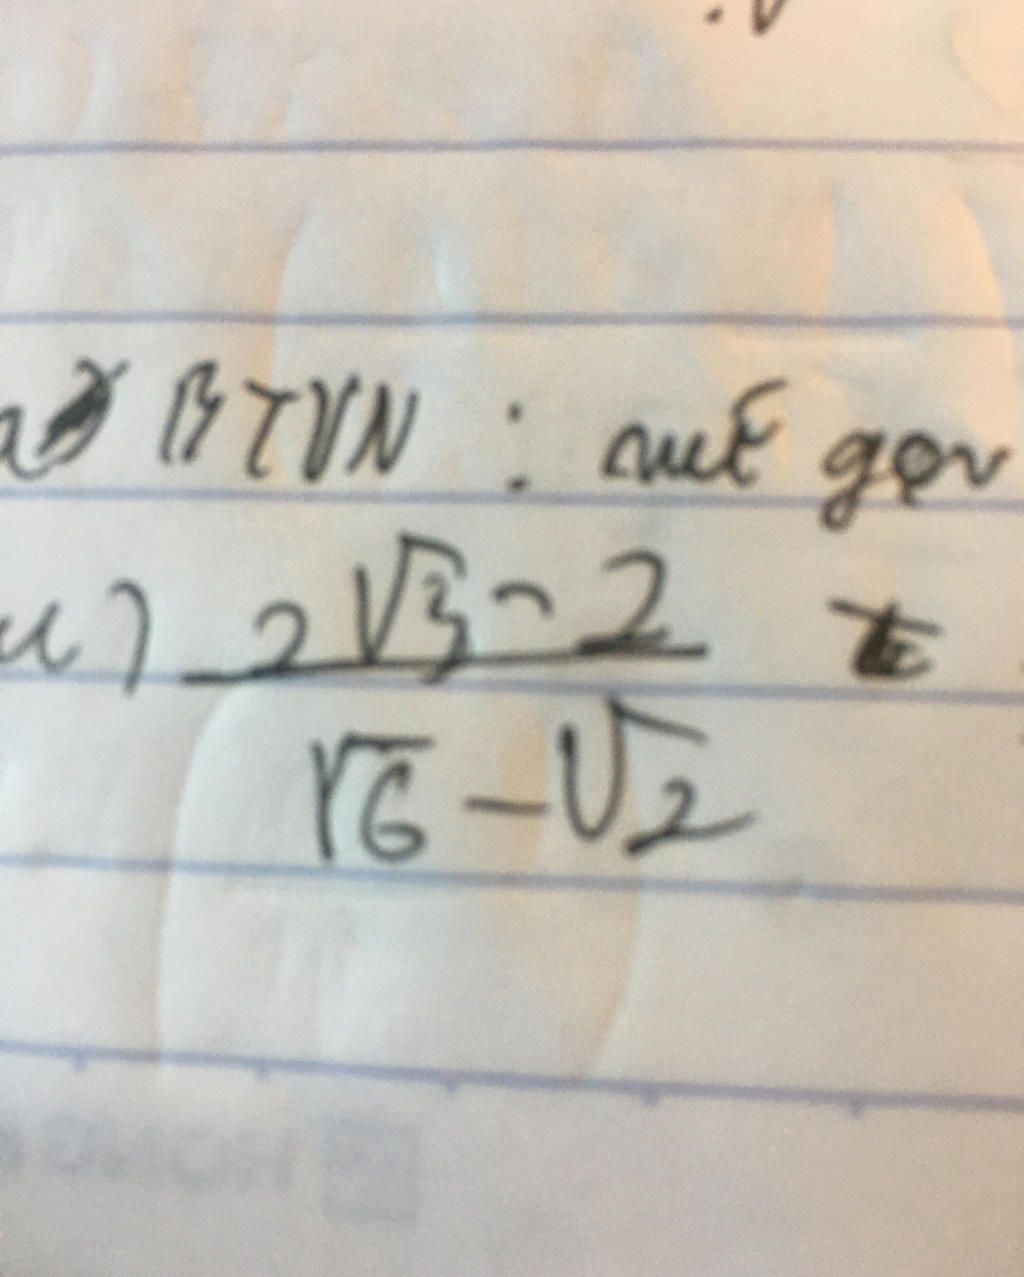 BTVN : rút gọn
u) (2√3 - 2)/(√6 - √2)